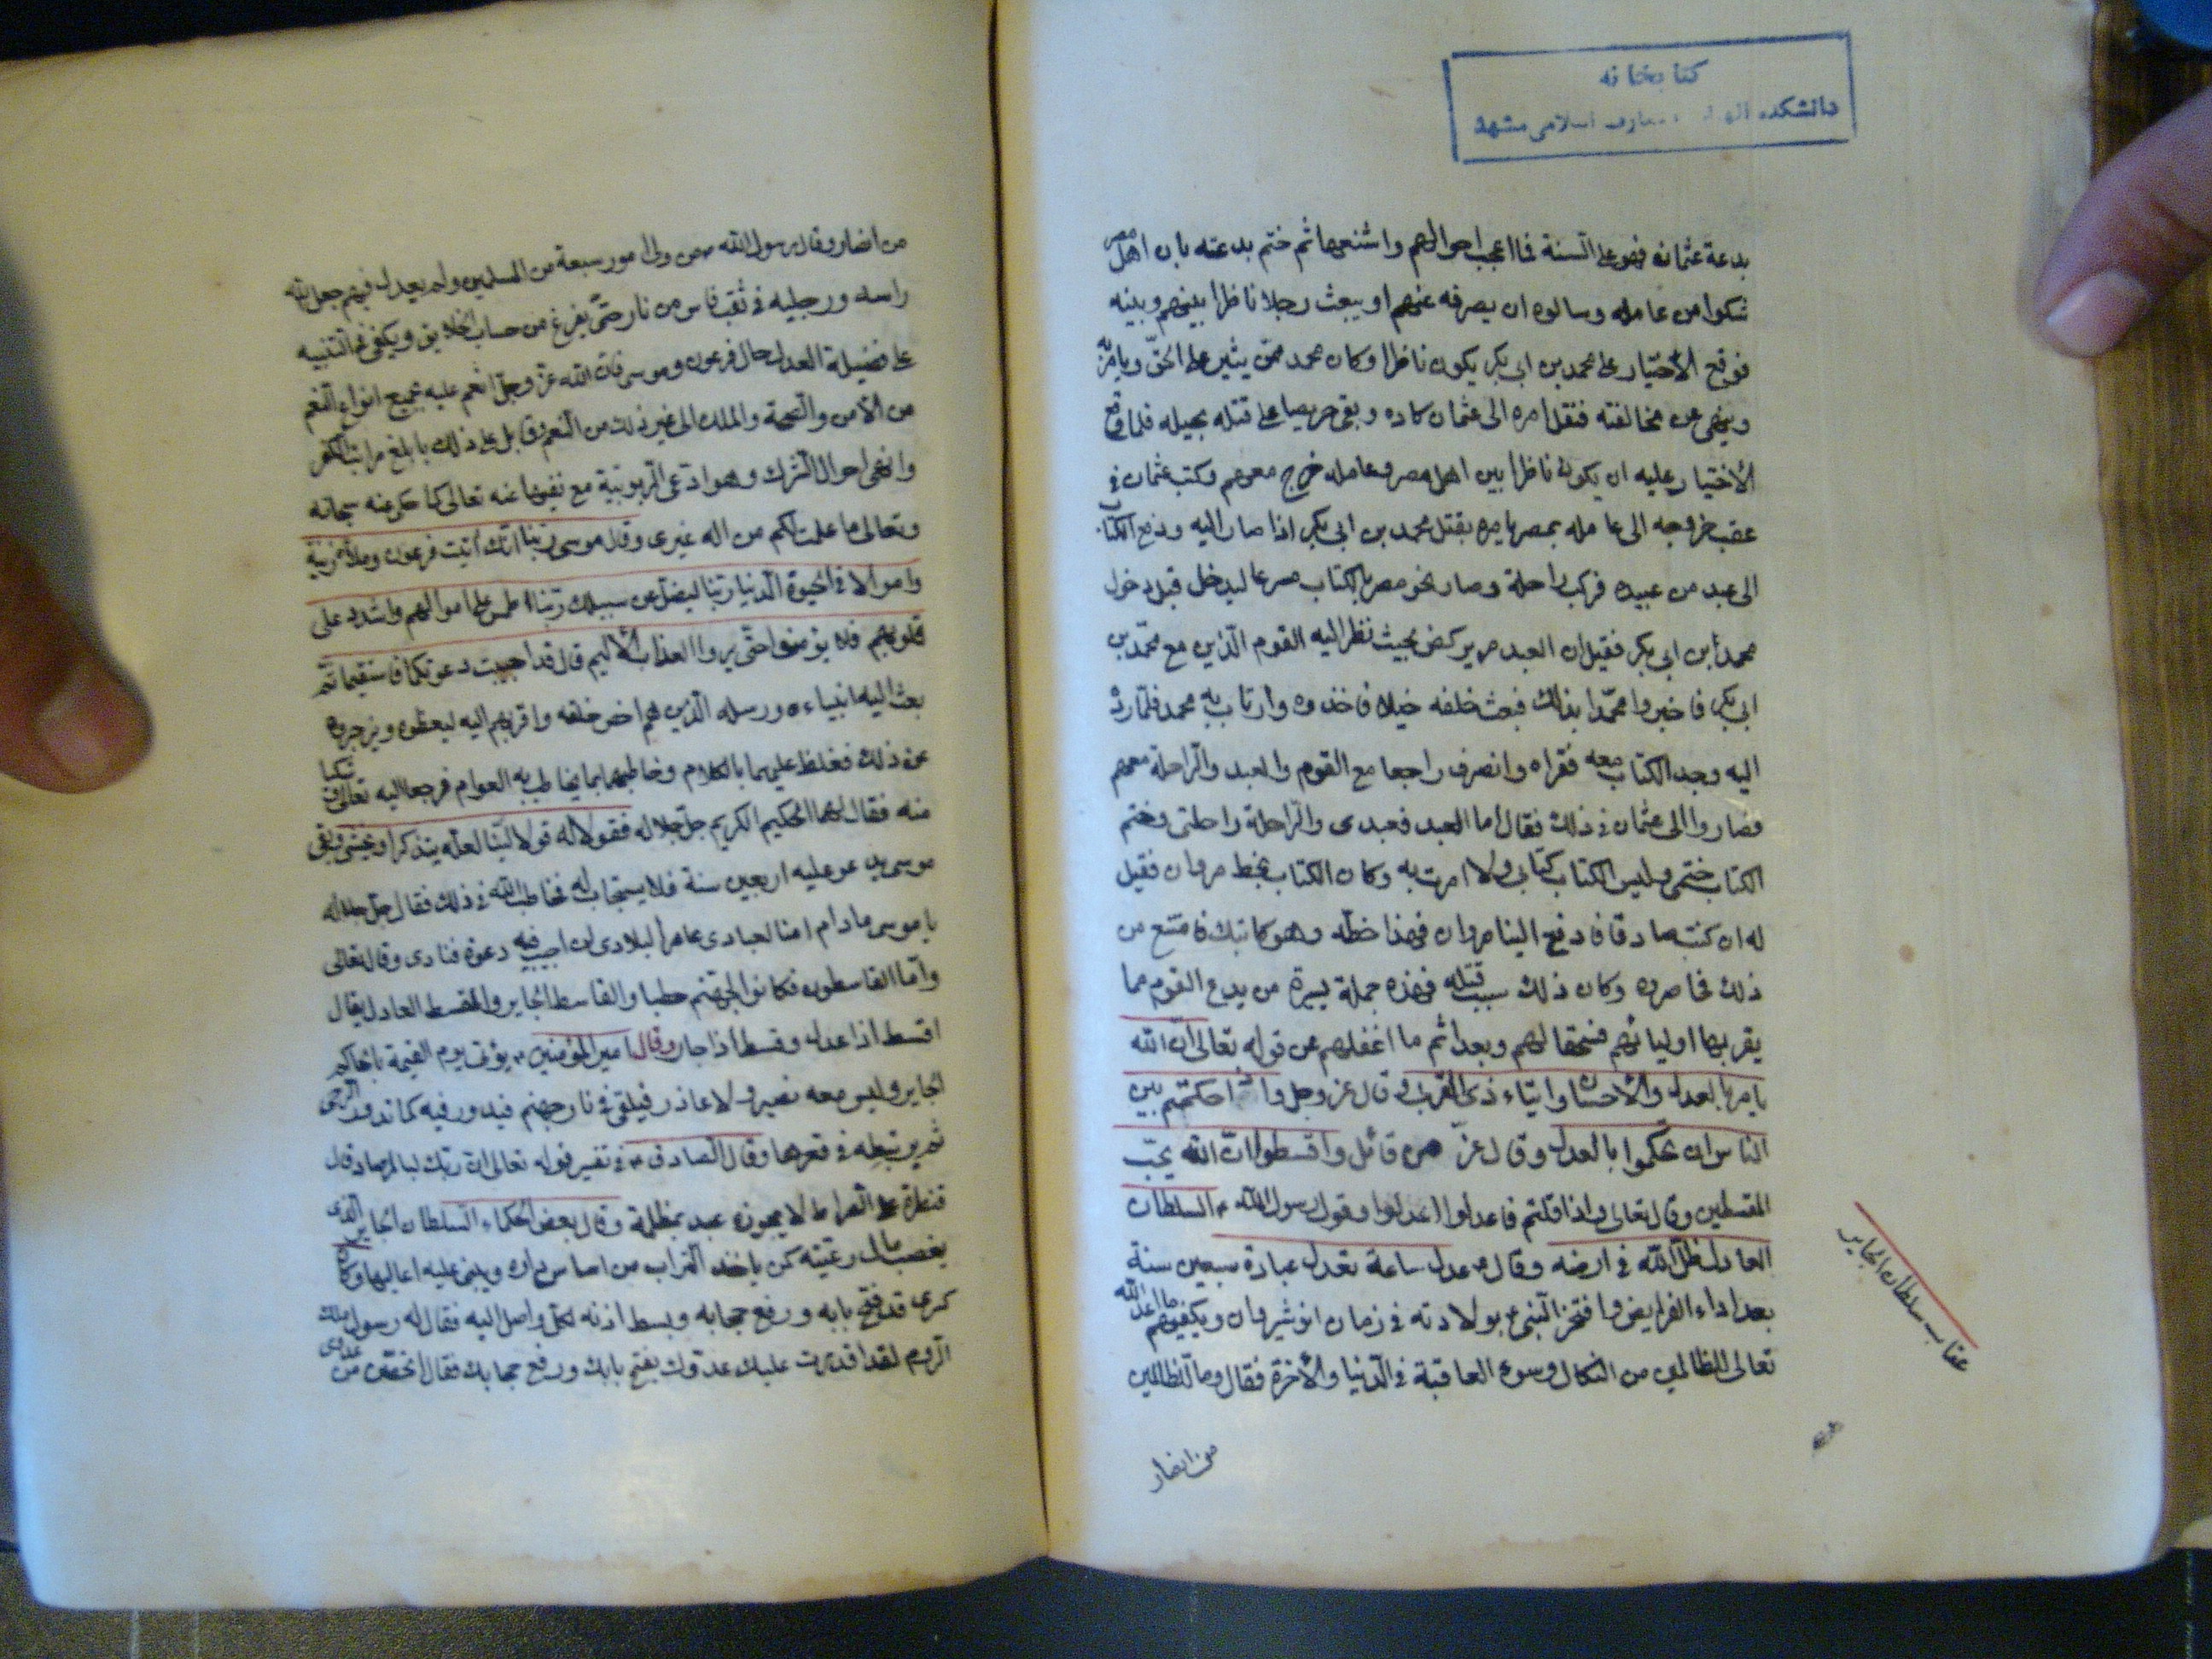 كتابخانه
دانشكده الهيات و معارف اسلامى مشهد
بدعة عثمان فهو على السنة فما اعجب احوالهم واشنعها ثم ختم بدعته بان اهل مصر
شكوا من عامله وسالوه ان يصرفه عنهم او يبعث رجلا ناظرا بينهم وبينه
فوقع الأختيار على محمد بن ابى بكر يكون ناظرا وكان محمد ممن يشير على الحق ويامر به
وينهى عن مخالفته فنقل امره الى عثمان كاده وبقى حريصا على قتله بحيله فلما وقع
الأختيار عليه ان يكون ناظرا بين اهل مصر وعامله خرج معهم وكتب عثمان فى
عقب خروجه الى عامله بمصر يامره بقتل محمد بن ابى بكر اذا صار اليه ودفع الكتاب
الى عبد من عبيده فركب راحلة وصار نحو مصر بالكتاب مسرعا ليدخل قبل دخول
محمد بن ابى بكر فقيل ان العبد مر يركض بحيث نظر اليه القوم الذين مع محمد بن
ابى بكر فاخبروا محمدا بذلك فبعث خلفه خيلا فاخذوه وارتاب به محمد فلما رد
اليه وجد الكتاب معه فقراه وانصرف راجعا مع القوم والعبد والراحلة معهم
فصاروا الى عثمان فى ذلك فقال اما العبد فعبدى والراحلة راحلتى وختم
الكتاب ختمى وليس الكتاب كتابى ولا امرت به وكان الكتاب بخط مروان فقيل
له ان كنت صادقا فادفع الينا مروان فهذا خطه وهو كاتبك فامتنع من
ذلك فحاصروه وكان ذلك سبب قتله فهذه جملة يسيرة من بدع القوم مما
يقر بها اوليائهم فسحقا لهم وبعدا ثم ما اغفلهم عن قوله تعالى ان الله
يامر بالعدل والأحسان وايتاء ذى القربى وقال عز وجل واذا حكمتم بين
الناس ان تحكموا بالعدل وقال عز من قائل واقسطوا ان الله يحب
المقسطين وقال تعالى واذا قلتم فاعدلوا اعدلوا وقول رسول الله السلطان
العادل ظل الله فى ارضه وقال عدل ساعة تعدل عبادة سبعين سنة
بعد اداء الفرايض وافتخر النبى بولادته فى زمان انوشيروان ويكفيهم ما اعد الله
تعالى للظالمين من النكال وسوء العاقبة فى الدنيا والأخرة فقال وما للظالمين
من انصار
عقاب سلطان الجاير
من انصار وقال رسول الله من ولى امور سبعة من المسلمين ولم يعدل فيهم جعل الله
راسه ورجليه فى ثقب فاس من نار حتى يفرغ من حساب الخلايق ويكفى فى التنبيه
على فضيلة العدل حال فرعون وموسى فان الله عز وجل انعم عليه بجميع انواع النعم
من الأمن والصحة والملك الى غير ذلك من النعم وقابل على ذلك بابلغ مراتب الكفر
وانهى احوال الشرك وهو ادعى الربوبية مع نفيها عنه تعالى كما حكى عنه سبحانه
وتعالى ما علمت لكم من اله غيرى وقال موسى ربنا انك اتيت فرعون وملأه زينة
واموالا فى الحيوة الدنيا ربنا ليضل عن سبيلك ربنا اطمس على اموالهم واشدد على
قلوبهم فلا يؤمنوا حتى يروا العذاب الأليم قال قد اجيبت دعوتكما فاستقيما ثم
بعث اليه انبياءه ورسله الذين هم اخص خلقه واقربهم اليه ليعظوه ويزجروه
عن ذلك فغلظ عليهما بالكلام وخاطبهما بما يخاطب به العوام فرجعا اليه تعالى
منه فقال لهما الحكيم الكريم جل جلاله فقولا له قولا لينا لعله يتذكر او يخشى وبقى
موسى يدعو عليه اربعين سنة فلا يستجاب له فخاطب الله فى ذلك فقال جل جلاله
يا موسى ما دام امنا لعبادى عامرا لبلادى لن اجيب فيه دعوة فنادى وقال تعالى
واما القاسطون فكانوا لجهنم حطبا والقاسط الجاير والمقسط العادل يقال
اقسط اذا عدل وقسط اذا جار وقال امير المؤمنين يؤتى يوم القيمة بالحاكم
الجاير وليس معه نصير ولا عاذر فيلقى فى نار جهنم فيدور فيه كما تدور الرحى
ثم يرتبطه فى قعرها وقال الصادق فى تفسير قوله تعالى ان ربك لبالمرصاد قال
قنطرة على الصراط لا يجوزه عبد بمظلمة وقال بعض الحكماء السلطان الجاير الذى
يغصب مال رعيته كمن ياخذ التراب من اساس داره ويبنى عليه اعاليها وكان
كسرى قد فتح بابه ورفع حجابه وبسط اذنه لكل واصل اليه فقال له رسول ملك
الروم لقد اقدرت عليك عدوك بفتح بابك ورفع حجابك فقال اتحصن من عدوى